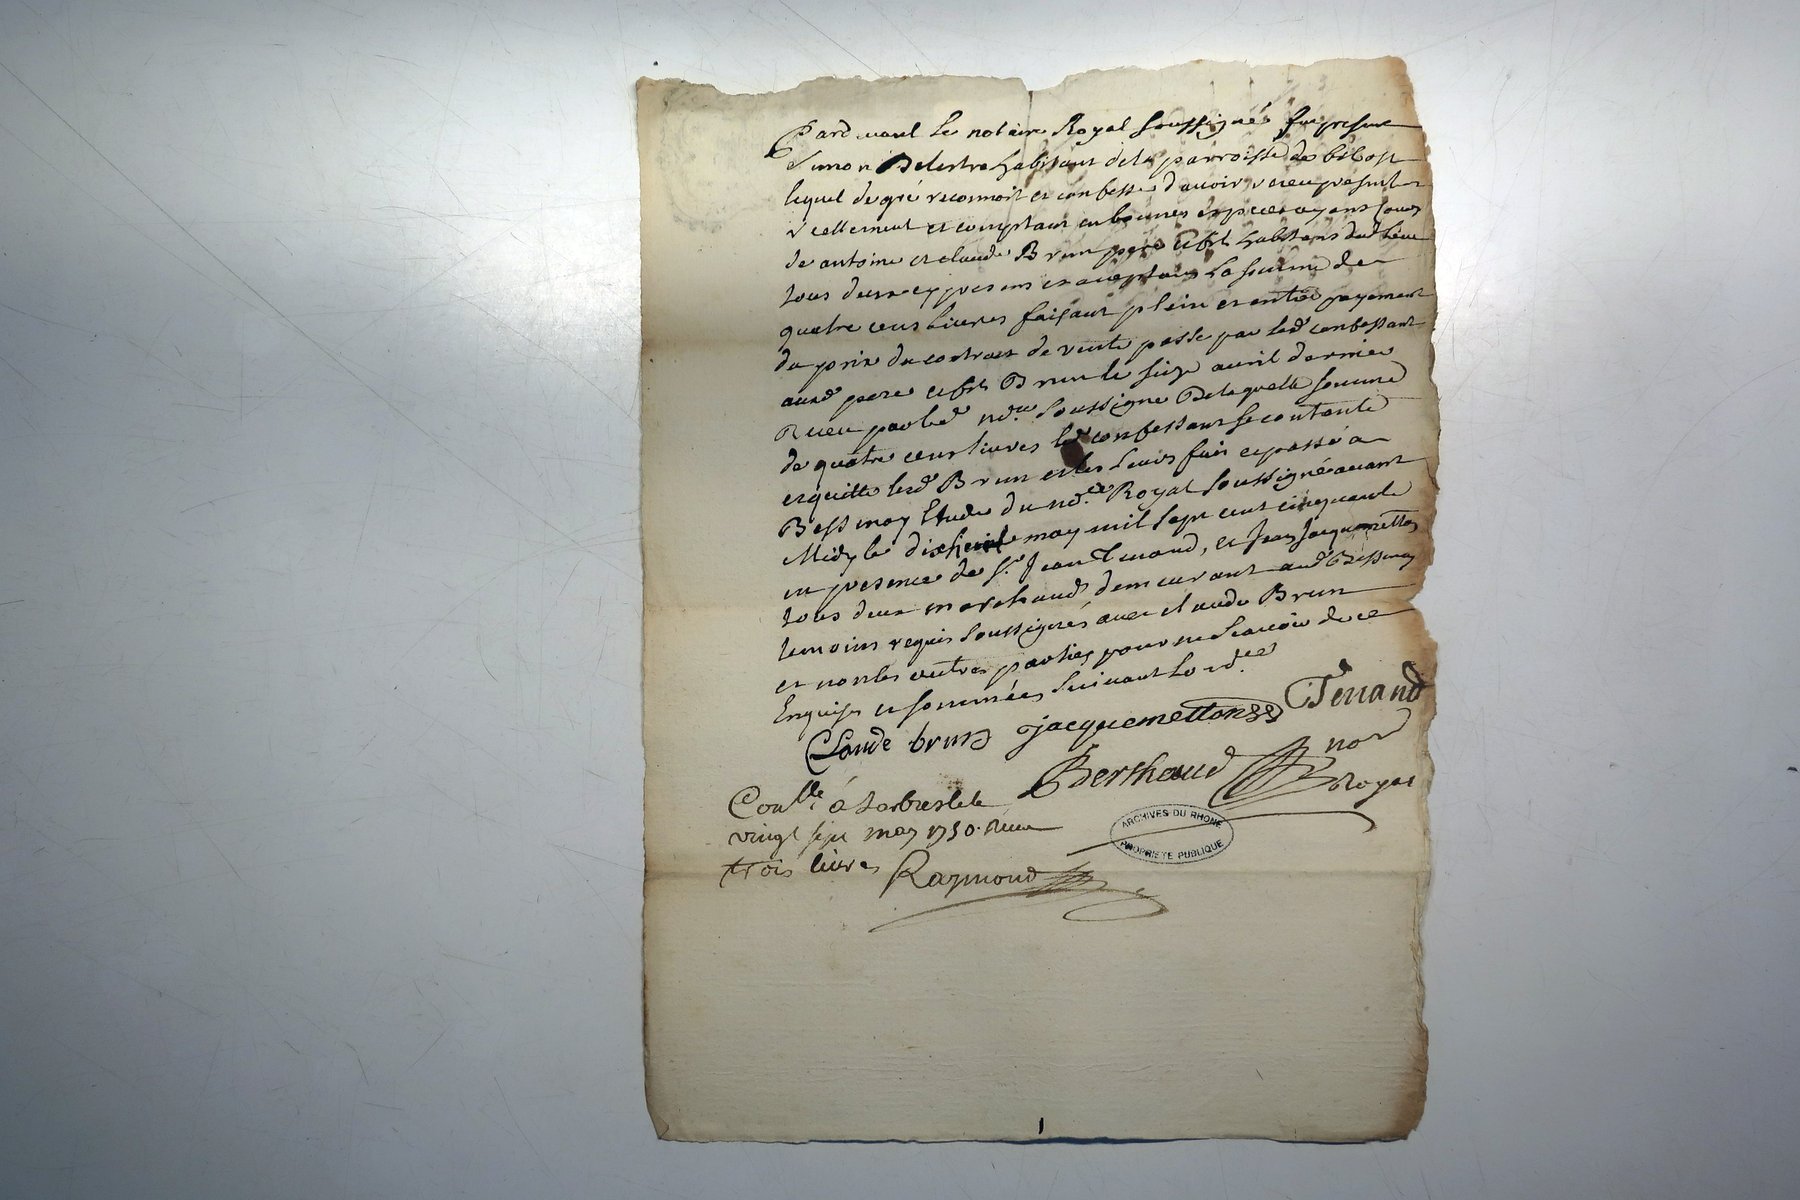 Pardevant le notaire Royal Soussigné fut present
Simon Delestra habitant de la parroisse de bibost
lequel de gré reconnoit et confesse d'avoir receu présentem
reellement et comptant en bonnes especes ayans cours
de antoine et claude Brun pere et fils habitans dud lieu
tous deux cy presens et acceptans La somme de
quatre cens livres faisant plein et entier payement
du prix du contract de vente passé par led confessant
auxd pere et fils Brun le seize avril dernier
Receu par led no.re Soussigné De laquelle somme
de quatre cens livres led confessant se contente
et quitte lesd Brun et les leurs fait et passé a
Bessenay Etude du no.re Royal Soussigné avant
Midy le dixhuit may mil sept cent cinquante
en presence de Sr Jean Tenand, et Jean Jacquemetton
tous deux marchands demeurant aud Bessenay
temoins requis Soussignés avec claude Brun
et non les autres parties pour ne scavoir de ce
Enquises et sommées Suivant Lord.ce
Claude brun jacquemetton Tenand
Berthaud not
Royal
Con.lle à Larbresle le
vingt sept may 1750. Receu
trois livres Raymond
ARCHIVES DU RHONE
PROPRIETE PUBLIQUE
1